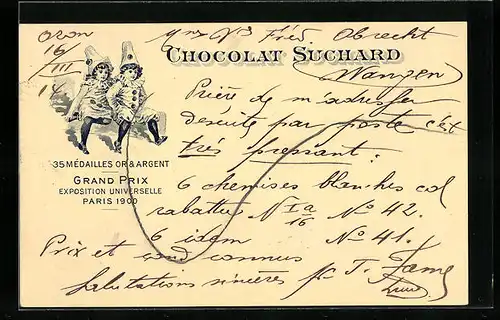 Oron
16/III
Mrs Vve Fréd Obrecht
CHOCOLAT SUCHARD
Wangen
Prière de m'adresser
desuite par poste c'est
très pressant:
6 chemises blanches col
rabattus N Ia/16 No 42.
6 idem No 41.
Prix et cond connues
Salutations sincères p. T.
35 MÉDAILLES OR & ARGENT
GRAND PRIX
EXPOSITION UNIVERSELLE
PARIS 1900